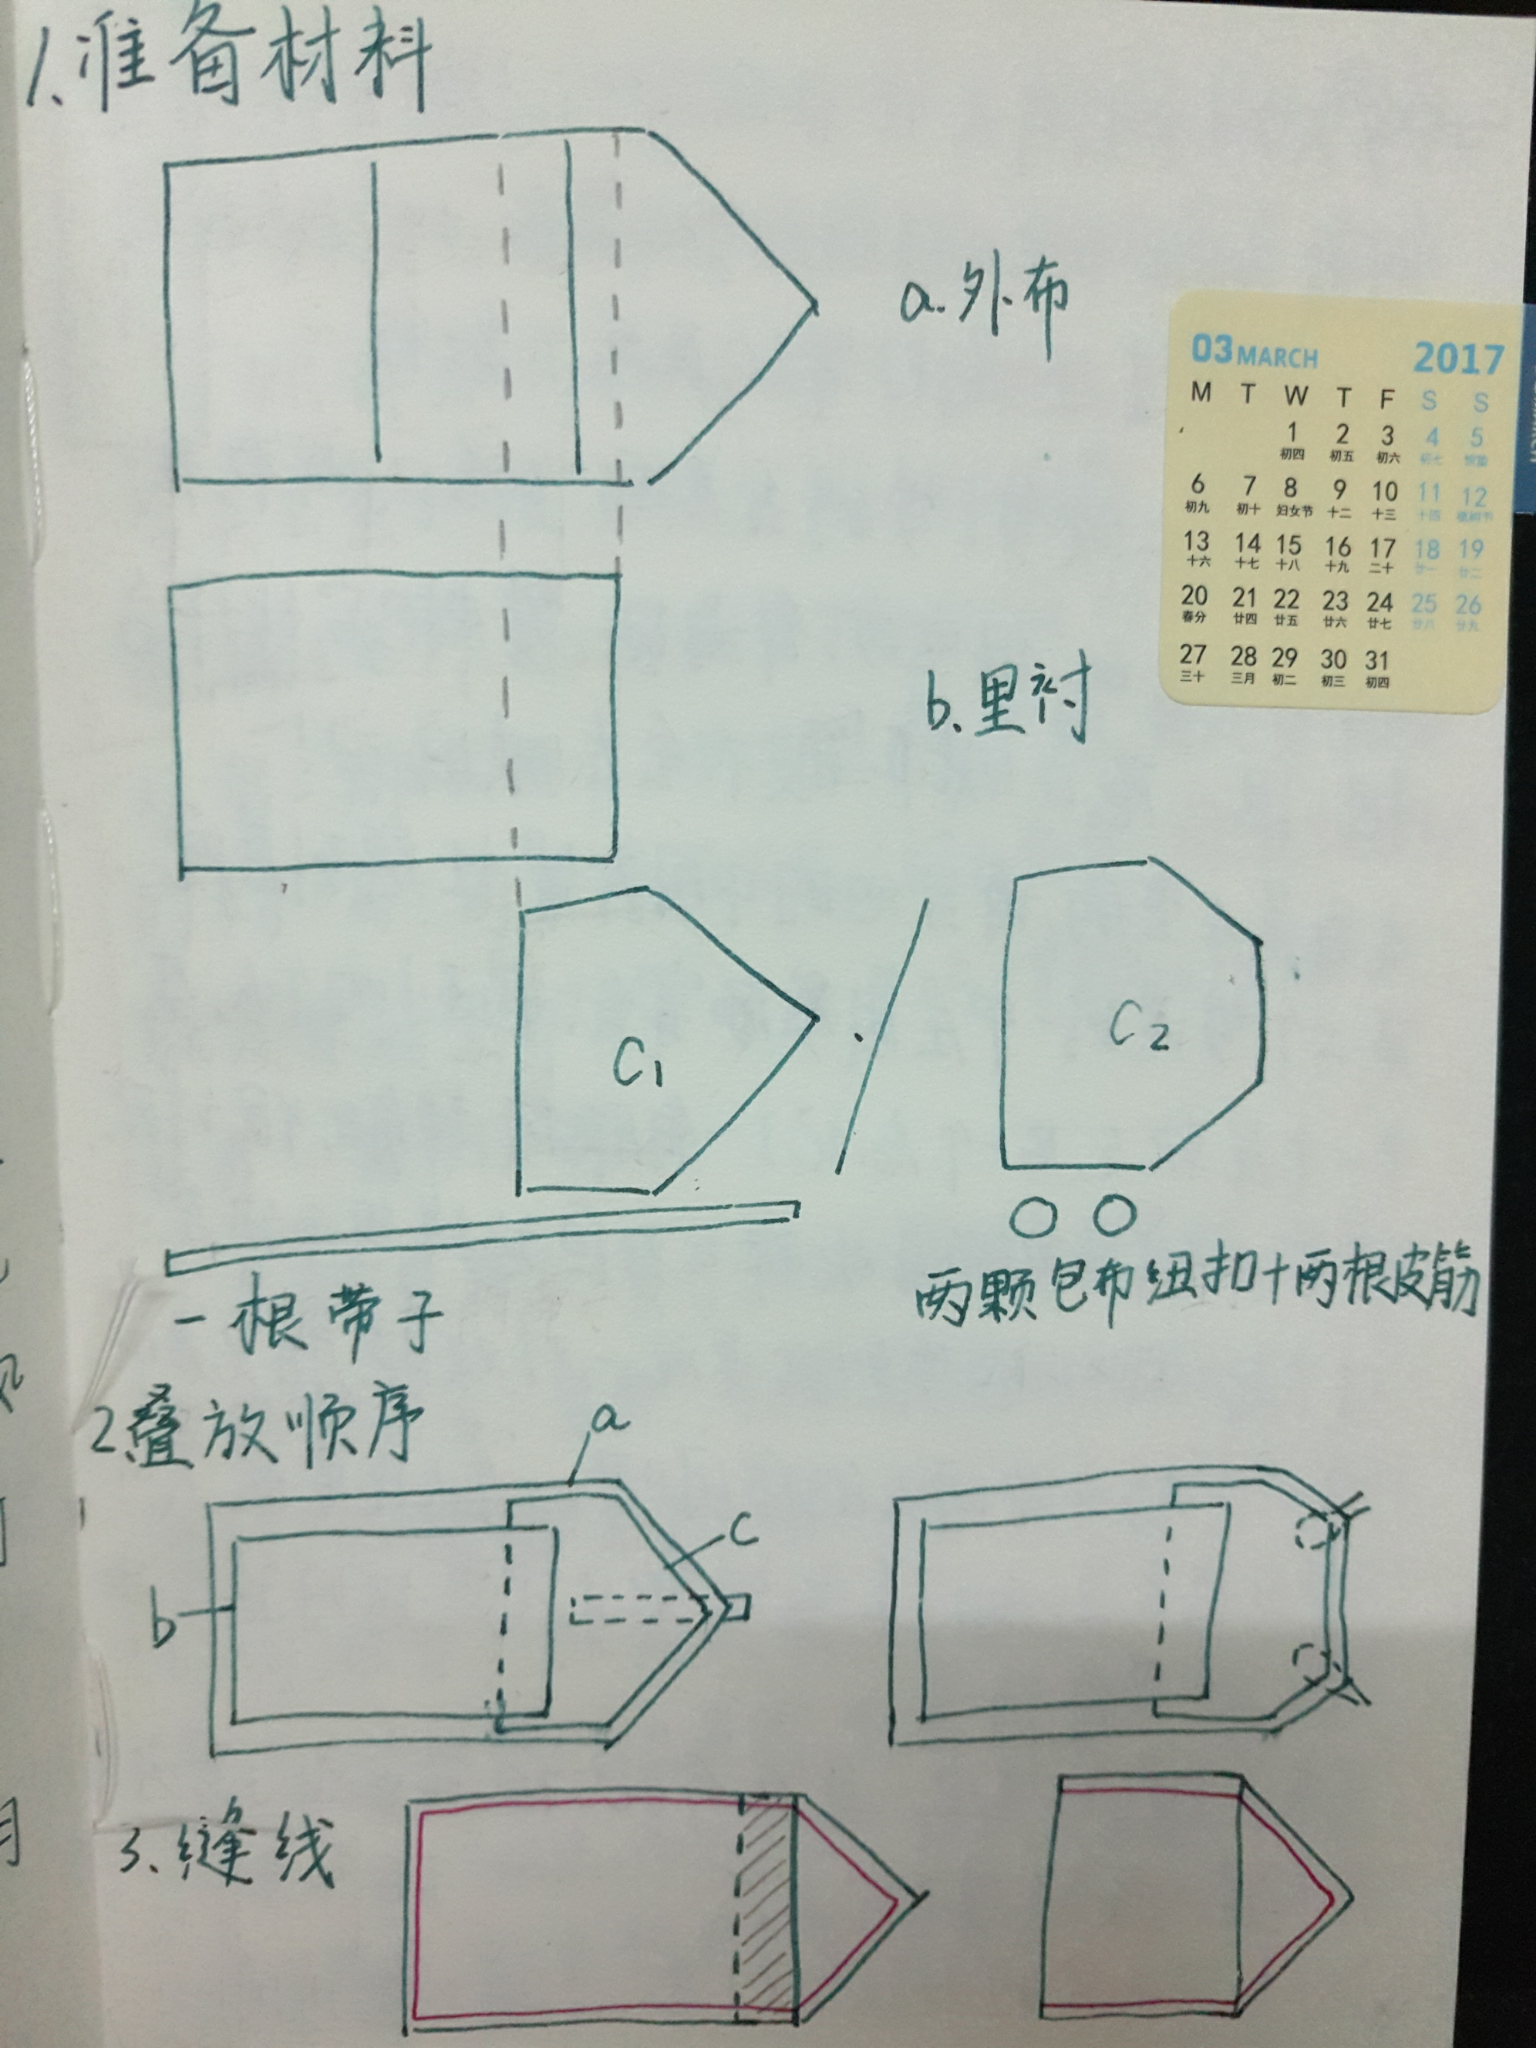 1.准备材料
a.外布
03 MARCH 2017
M T W T F S S
1 2 3 4 5
初四 初五 初六 初七
6 7 8 9 10 11 12
初九 初十 妇女节 十二 十三 十四 植树节
13 14 15 16 17 18 19
十六 十七 十八 十九 二十 廿一 廿二
20 21 22 23 24 25 26
春分 廿四 廿五 廿六 廿七 廿八 廿九
27 28 29 30 31
三十 三月 初二 初三 初四
b.里衬
C1
C2
一根带子
两颗包布纽扣+两根皮筋
2.叠放顺序
a
c
b
3.缝线